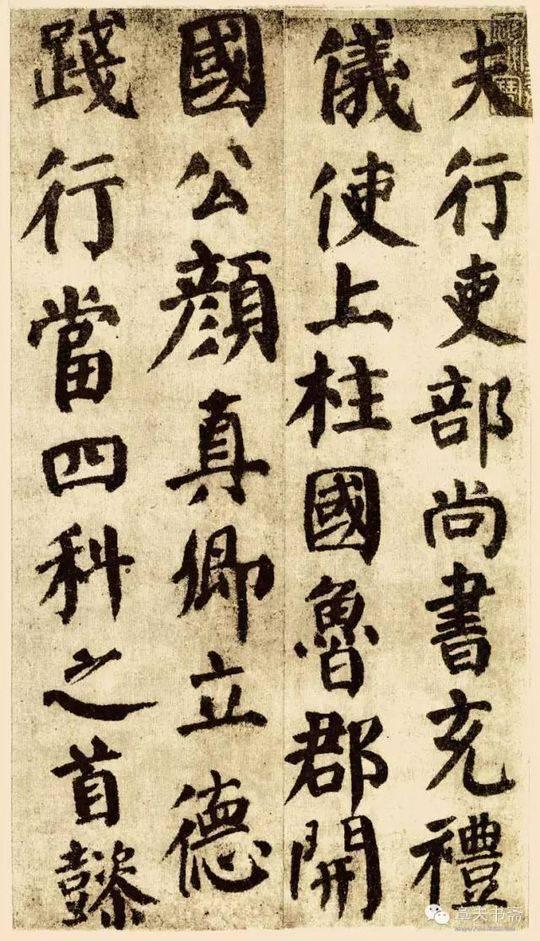 夫行吏部尚書充禮
儀使上柱國魯郡開
國公顔真卿立德
踐行當四科之首懿
章夫书斋